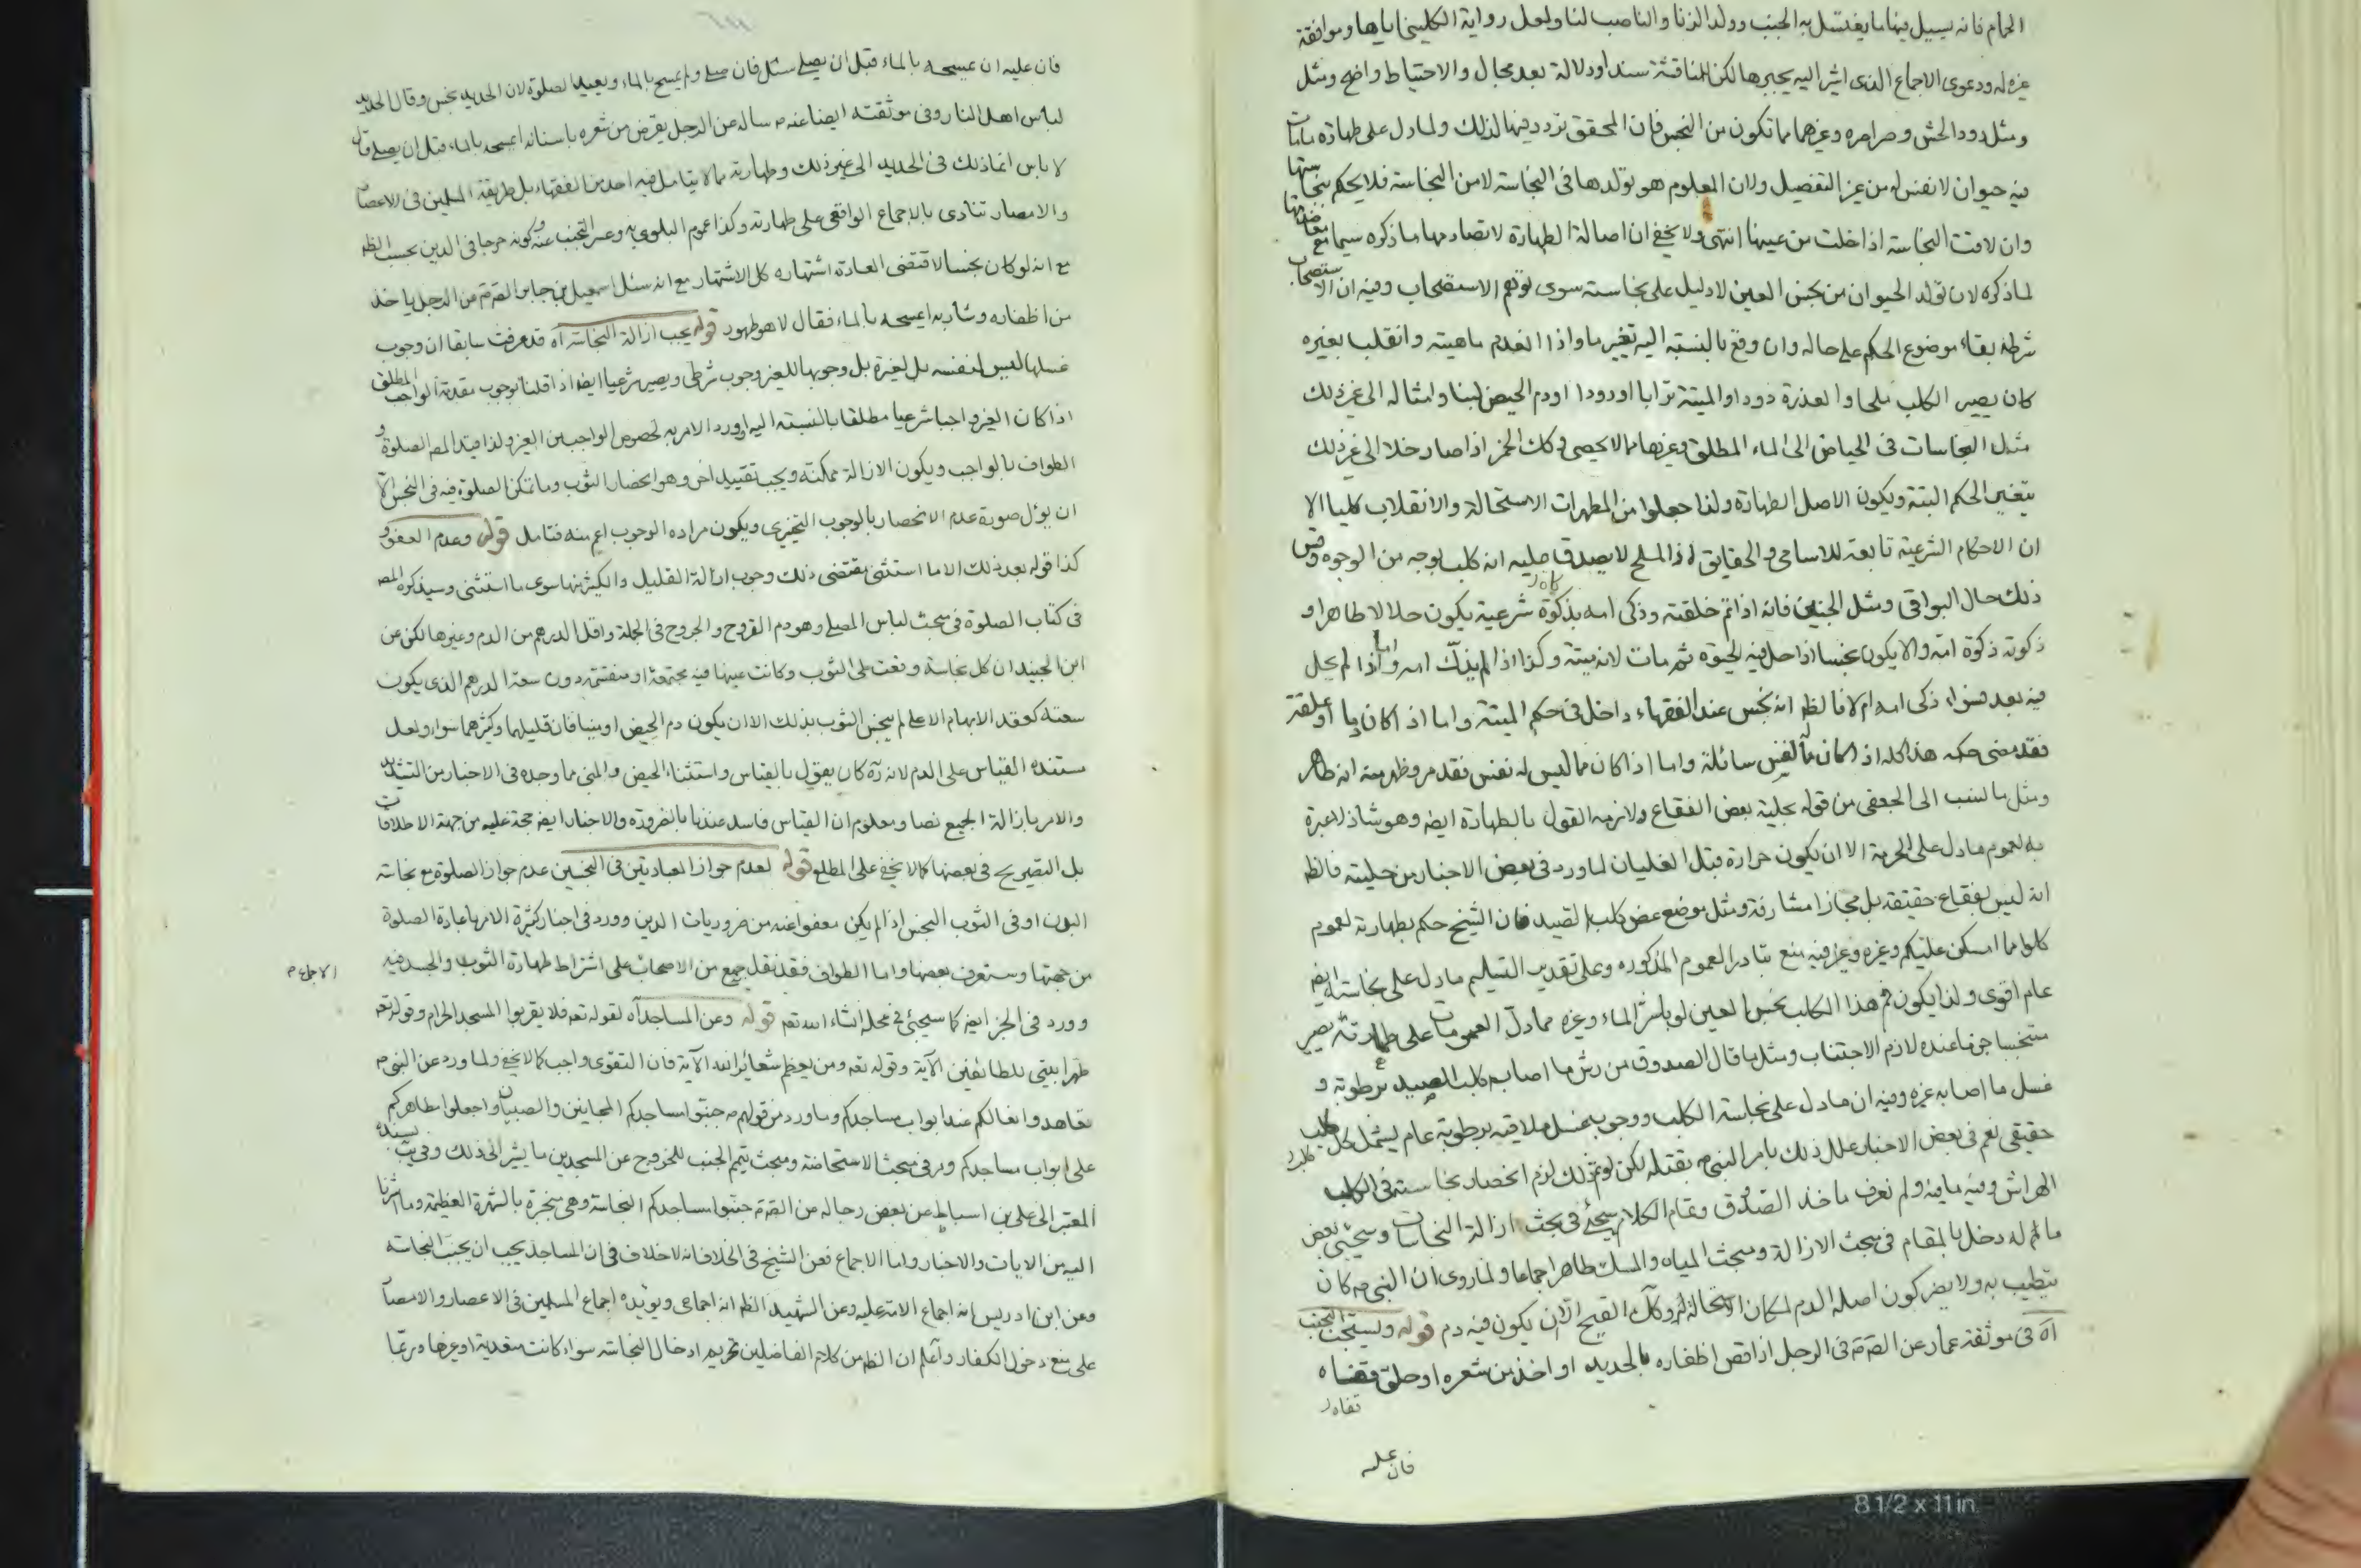 الحمام فانه يسيل فيها ما يغتسل به الجنب وولد الزنا والناصب لنا ولعل رواية الكليني اياها وموافقة
غيره له ودعوى الاجماع الذى اشير اليه يجبرها لكن المناقشة سندا ودلالة بعد مجال والاحتياط واضح ومثل
ومثل دود الحش وصراصره وغيرهما مما تكون من النجس فان المحقق تردد فيها لذلك ولما دل على طهارة ما مات
فيه حيوان لا نفس له من غير التفصيل ولان المعلوم هو تولدها فى النجاسة لا من النجاسة فلا يحكم بنجاستها
وان لاقت النجاسة اذا خلت من عينها انتهى ولا يخفى ان اصالة الطهارة لا تصادمها ما ذكره سيما مع معاضدتها
لما ذكره لان تولد الحيوان من نجس العين لا دليل على نجاسته سوى توهم الاستصحاب وفيه ان الاستصحاب
شرطه بقاء موضوع الحكم على حاله وان وقع بالنسبة اليه تغير ما واذا انعدم ماهيته وانقلب بغيره
كان يصير الكلب ملحا والعذرة دودا والميتة ترابا او دودا او دم الحيض لبنا وامثاله الى غير ذلك
مثل النجاسات فى الحياض الى الماء المطلق وغيرها مما لا يحصى وكك الخمر اذا صار خلا الى غير ذلك
يتغير الحكم البتة ويكون الاصل الطهارة ولذا جعلوا من المطهرات الاستحالة والانقلاب كليا الا
ان الاحكام الشرعية تابعة للاسامى والحقايق اذ الملح لا يصدق عليه انه كلب بوجه من الوجوه وقس
ذلك حال البواقى ومثل الجنين فانه اذا تم خلقته وذكى امه بذكوة شرعية يكون حلالا طاهرا و
ذكوته ذكوة امه والا يكون نجسا اذا حل فيه الحيوة ثم مات لانه ميتة وكذا اذا لم يذك امه واما اذا لم يحل
فيه بعد سواء ذكى امه ام لا فالظ انه نجس عند الفقهاء داخل فى حكم الميتة واما اذا كان دما او علقة
فقد مضى حكمه هذا كله اذا كان مما له نفس سائلة واما اذا كان مما ليس له نفس فقد مر وظهر منه انه طاهر
ومثل ما نسب الى الجعفى من قوله بحلية بعض الفقاع ولازمه القول بالطهارة ايضا وهو شاذ لا عبرة
به لعموم ما دل على الحرمة الا ان يكون حرارة قبل الغليان لما ورد فى بعض الاخبار من حليته فالظ
انه ليس بفقاع حقيقة بل مجازا مشارفة ومثل موضع عض كلب الصيد فان الشيخ حكم بطهارته لعموم
كلوا مما امسكن عليكم وغيره وغير فيه منع تبادر العموم المذكوره وعلى تقدير التسليم ما دل على نجاسته ايض
عام اقوى ولذا يكون فم هذا الكلب نجس العين لو باشر الماء وغيره مما دل العمومات على طهارته يصير
متنجسا جزما عنده لازم الاجتناب ومثل ما قال الصدوق من رش ما اصابه كلب الصيد برطوبة و
غسل ما اصابه غيره وفيه ان ما دل على نجاسة الكلب ووجوب غسل ملاقيه برطوبة عام يشمل كل كلب
حقيقى نعم فى بعض الاخبار علل ذلك بامر النبى ص بقتله لكن لو تم ذلك لزم انحصار نجاسته فى الكلب
الهراش وفيه ما فيه ولم نعرف ماخذ الصدوق وتمام الكلام سيجئ فى بحث ازالة النجاسات وسيجئ بعض
ما له دخل بالمقام فى مبحث الازالة ومبحث المياه والمسك طاهر اجماعا ولما روى ان النبى ص كان
يتطيب به ولا يضر كون اصله الدم لمكان الاستحالة وكذا القيح الا ان يكون فيه دم قوله ويستحب التجنب
اه فى موثقة عمار عن الص ع فى الرجل اذا قص اظفاره بالحديد او اخذ من شعره او حلق قفاه
قفاه
فان عليه
فان عليه ان يمسحه بالماء قبل ان يصلى سئل فان صلى ولم يمسح بالماء ويعيد الصلوة لان الحديد نجس وقال الحديد
لباس اهل النار وفى موثقته ايضا عنه ع ساله عن الرجل يقرض من شعره باسنانه ايمسحه بالماء قبل ان يصلى قال
لا باس انما ذلك فى الحديد الى غير ذلك وطهارته مما لا يتامل فيه احد من الفقهاء بل طريقة المسلمين فى الاعصار
والامصار تنادى بالاجماع الواقعى على طهارته وكذا عموم البلوى به وعسر التجنب عنه وكونه حرجا فى الدين بحسب الظ
مع انه لو كان نجسا لاقتضى العادة اشتهاره كل الاشتهار مع انه سئل اسمعيل بن جابر الص ع عن الرجل ياخذ
من اظفاره وشاربه ايمسحه بالماء فقال لا هو طهور قوله يجب ازالة النجاسة اه قد عرفت سابقا ان وجوب
غسلها ليس لنفسه بل لغيره بل وجوبها للغير وجوب شرطى ويصير شرعيا ايضا اذا قلنا بوجوب مقدمة الواجب المطلق
اذا كان الغير واجبا شرعيا مطلقا بالنسبة اليه او ورد الامر به لخصوص الواجب من الغير ولذا قيد المص الصلوة و
الطواف بالواجب ويكون الازالة ممكنة ويجب تقييد اخر وهو انحصار الثوب وما تمكن الصلوة فيه فى النجس الا
ان يؤل صورة عدم الانحصار بالوجوب التخييرى ويكون مراده الوجوب اعم منه فتامل قوله وعدم العفو و
كذا قوله بعد ذلك الا ما استثنى مقتضى ذلك وجوب ازالة القليل والكثير منها سوى ما استثنى وسيذكره المص
فى كتاب الصلوة فى مبحث لباس المصلى وهو دم القروح والجروح فى الجملة واقل الدرهم من الدم وغيرها لكن عن
ابن الجنيد ان كل نجاسة وقعت على الثوب وكانت عينها فيه مجتمعة او منفشة دون سعة الدرهم الذى يكون
سعته كعقد الابهام الاعلى لم ينجس الثوب بذلك الا ان يكون دم الحيض او منيا فان قليلهما وكثيرهما سواء ولعل
مستنده القياس على الدم لانه ره كان يقول بالقياس واستثناء الحيض والمنى مما وجده فى الاخبار من التشديد
والامر بازالة الجميع نصا ومعلوم ان القياس فاسد عندنا بالضرورة والاخبار ايض حجة عليه من جهة الاطلاقات
بل التصريح فى بعضها كما لا يخفى على المطلع قوله لعدم جواز العبادتين فى النجسين عدم جواز الصلوة مع نجاسة
البدن او فى الثوب النجس اذا لم يكن معفوا عنه من ضروريات الدين وورد فى اخبار كثيرة الامر باعادة الصلوة
من جهتها وستعرف بعضها واما الطواف فقد نقل جمع من الاصحاب على اشتراط طهارة الثوب والجسد فيه
الاجماع
وورد فى الخبر ايض كما سيجئ فى محله انشاء الله تعه قوله وعن المساجد اه لقوله تعه فلا يقربوا المسجد الحرام وقوله تعه
طهرا بيتى للطائفين الآية وقوله تعه ومن يعظم شعائر الله الآية فان التقوى واجب كما لا يخفى ولما ورد عن النبى ص
تعاهدوا نعالكم عند ابواب مساجدكم وما ورد من قولهم ع جنبوا مساجدكم المجانين والصبيان واجعلوا مطاهركم
على ابواب مساجدكم ومر فى مبحث الاستحاضة ومبحث تيمم الجنب للخروج عن المسجدين ما يشير الى ذلك وفى يب بسنده
المعتبر الى على بن اسباط عن بعض رجاله عن الص ع جنبوا مساجدكم النجاسة وهى منجبرة بالشهرة العظيمة وما اشرنا
اليه من الايات والاخبار واما الاجماع فعن الشيخ فى الخلاف انه لا خلاف فى ان المساجد يجب ان يجنب النجاسة
وعن ابن ادريس انه اجماع الامة عليه وعن الشهيد الظ انه اجماعى ويؤيده اجماع المسلمين فى الاعصار والامصار
على منع دخول الكفار واعلم ان الظ من كلام الفاضلين تحريم ادخال النجاسة سواء كانت متعدية او غيرها وربما